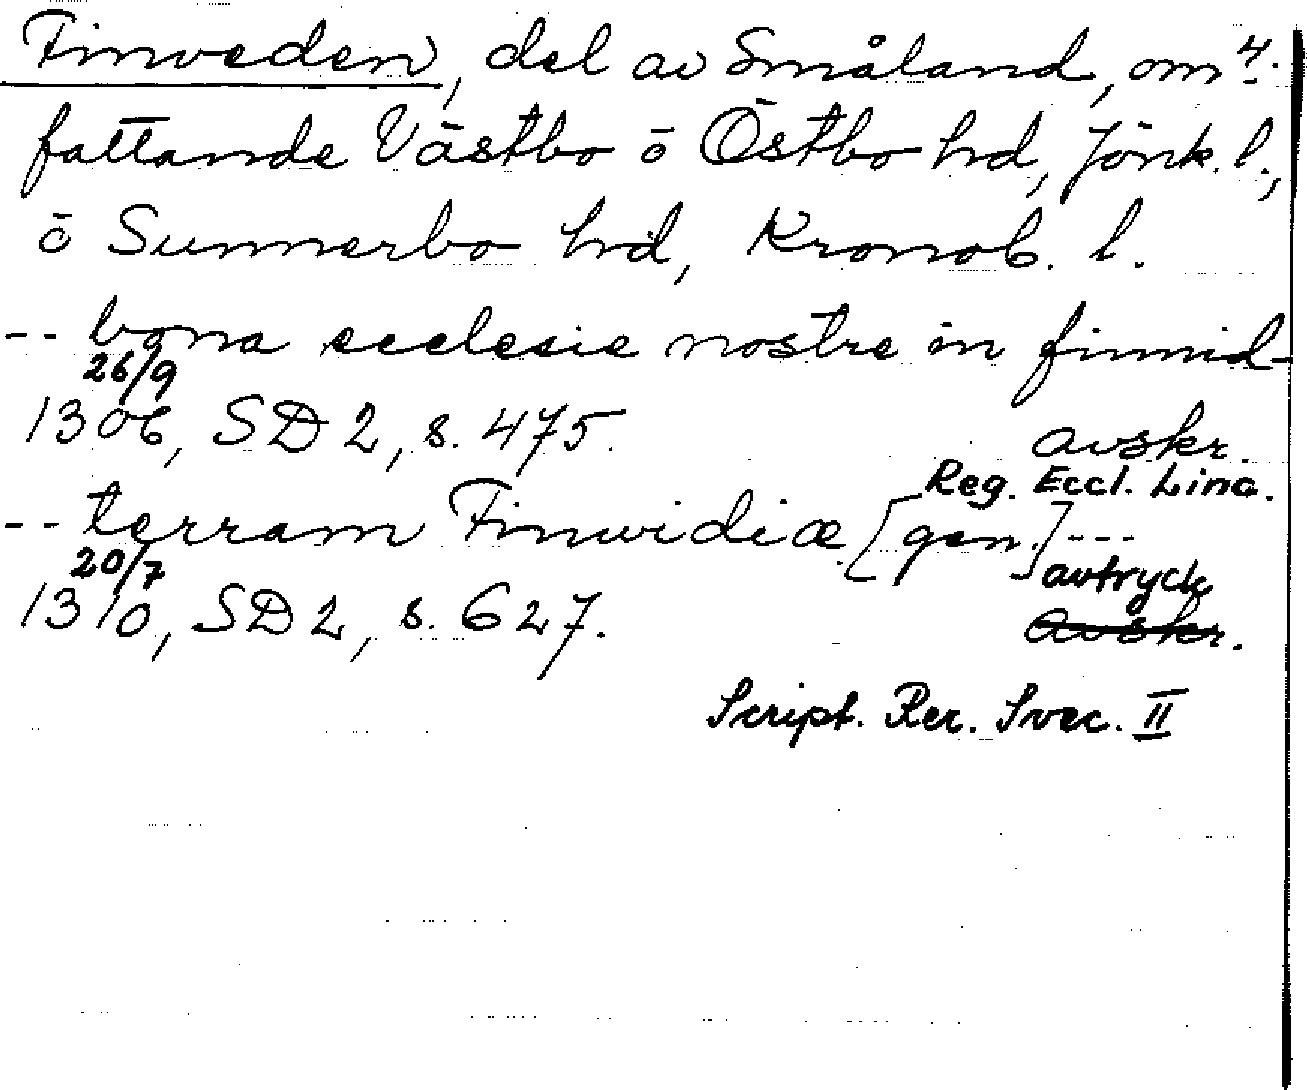 Finveden, del av Småland, om- 4.
fattande Västbo o Östbo hd, Jönk. l.,
o Sunnerbo hd, Kronob. l.
-- bona ecclesie nostre in finnid-
26/9
1306, SD 2, s. 475. avskr.
Reg. Eccl. Linc.
-- terram Finwidiæ [gen.] ---
20/7 avtryck
1310, SD 2, s. 627. avskr.
Script. Rer. Svec. II